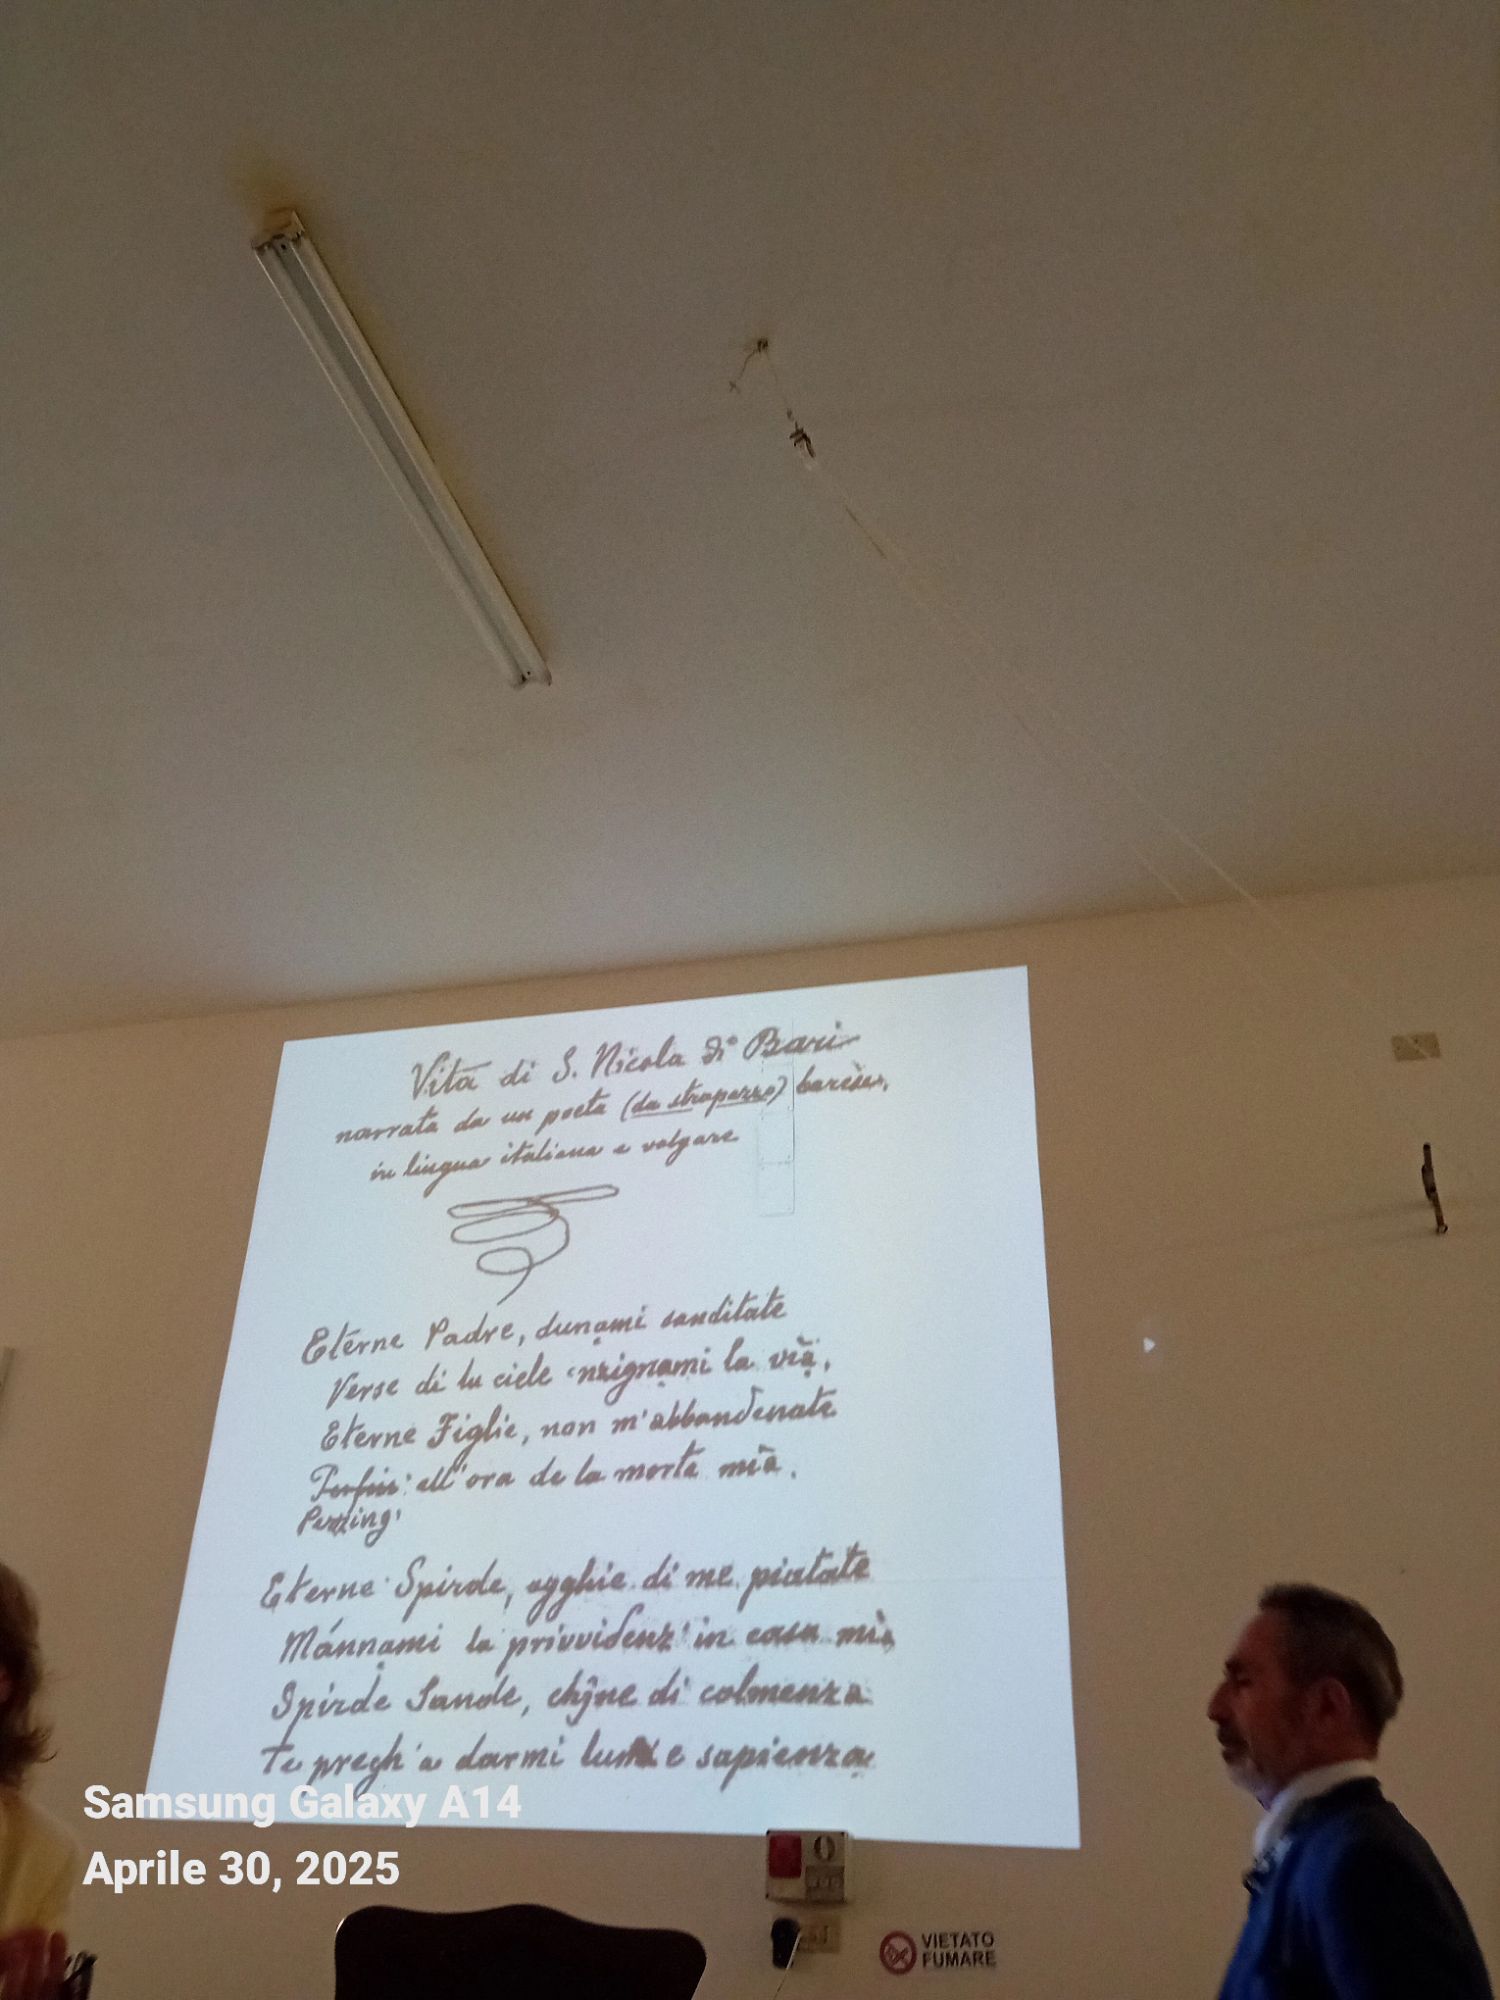 Vita di S. Nicola di Bari
narrata da un poeta (da strapazzo) barese,
in lingua italiana e volgare
Etèrne Padre, dunami sanditate
Verse di lu ciele 'nzignami la vià,
Eterne Figlie, non m'abbandenate
Perfin: all'ora de la morte mià.
Perzing'
Eterne Spirde, agghie di me piatate
Mánnami la privvidenz' in casa mià
Spirde Sande, chjne di colmenza
Te pregh'a darmi lume e sapienza
Samsung Galaxy A14
Aprile 30, 2025
VIETATO
FUMARE